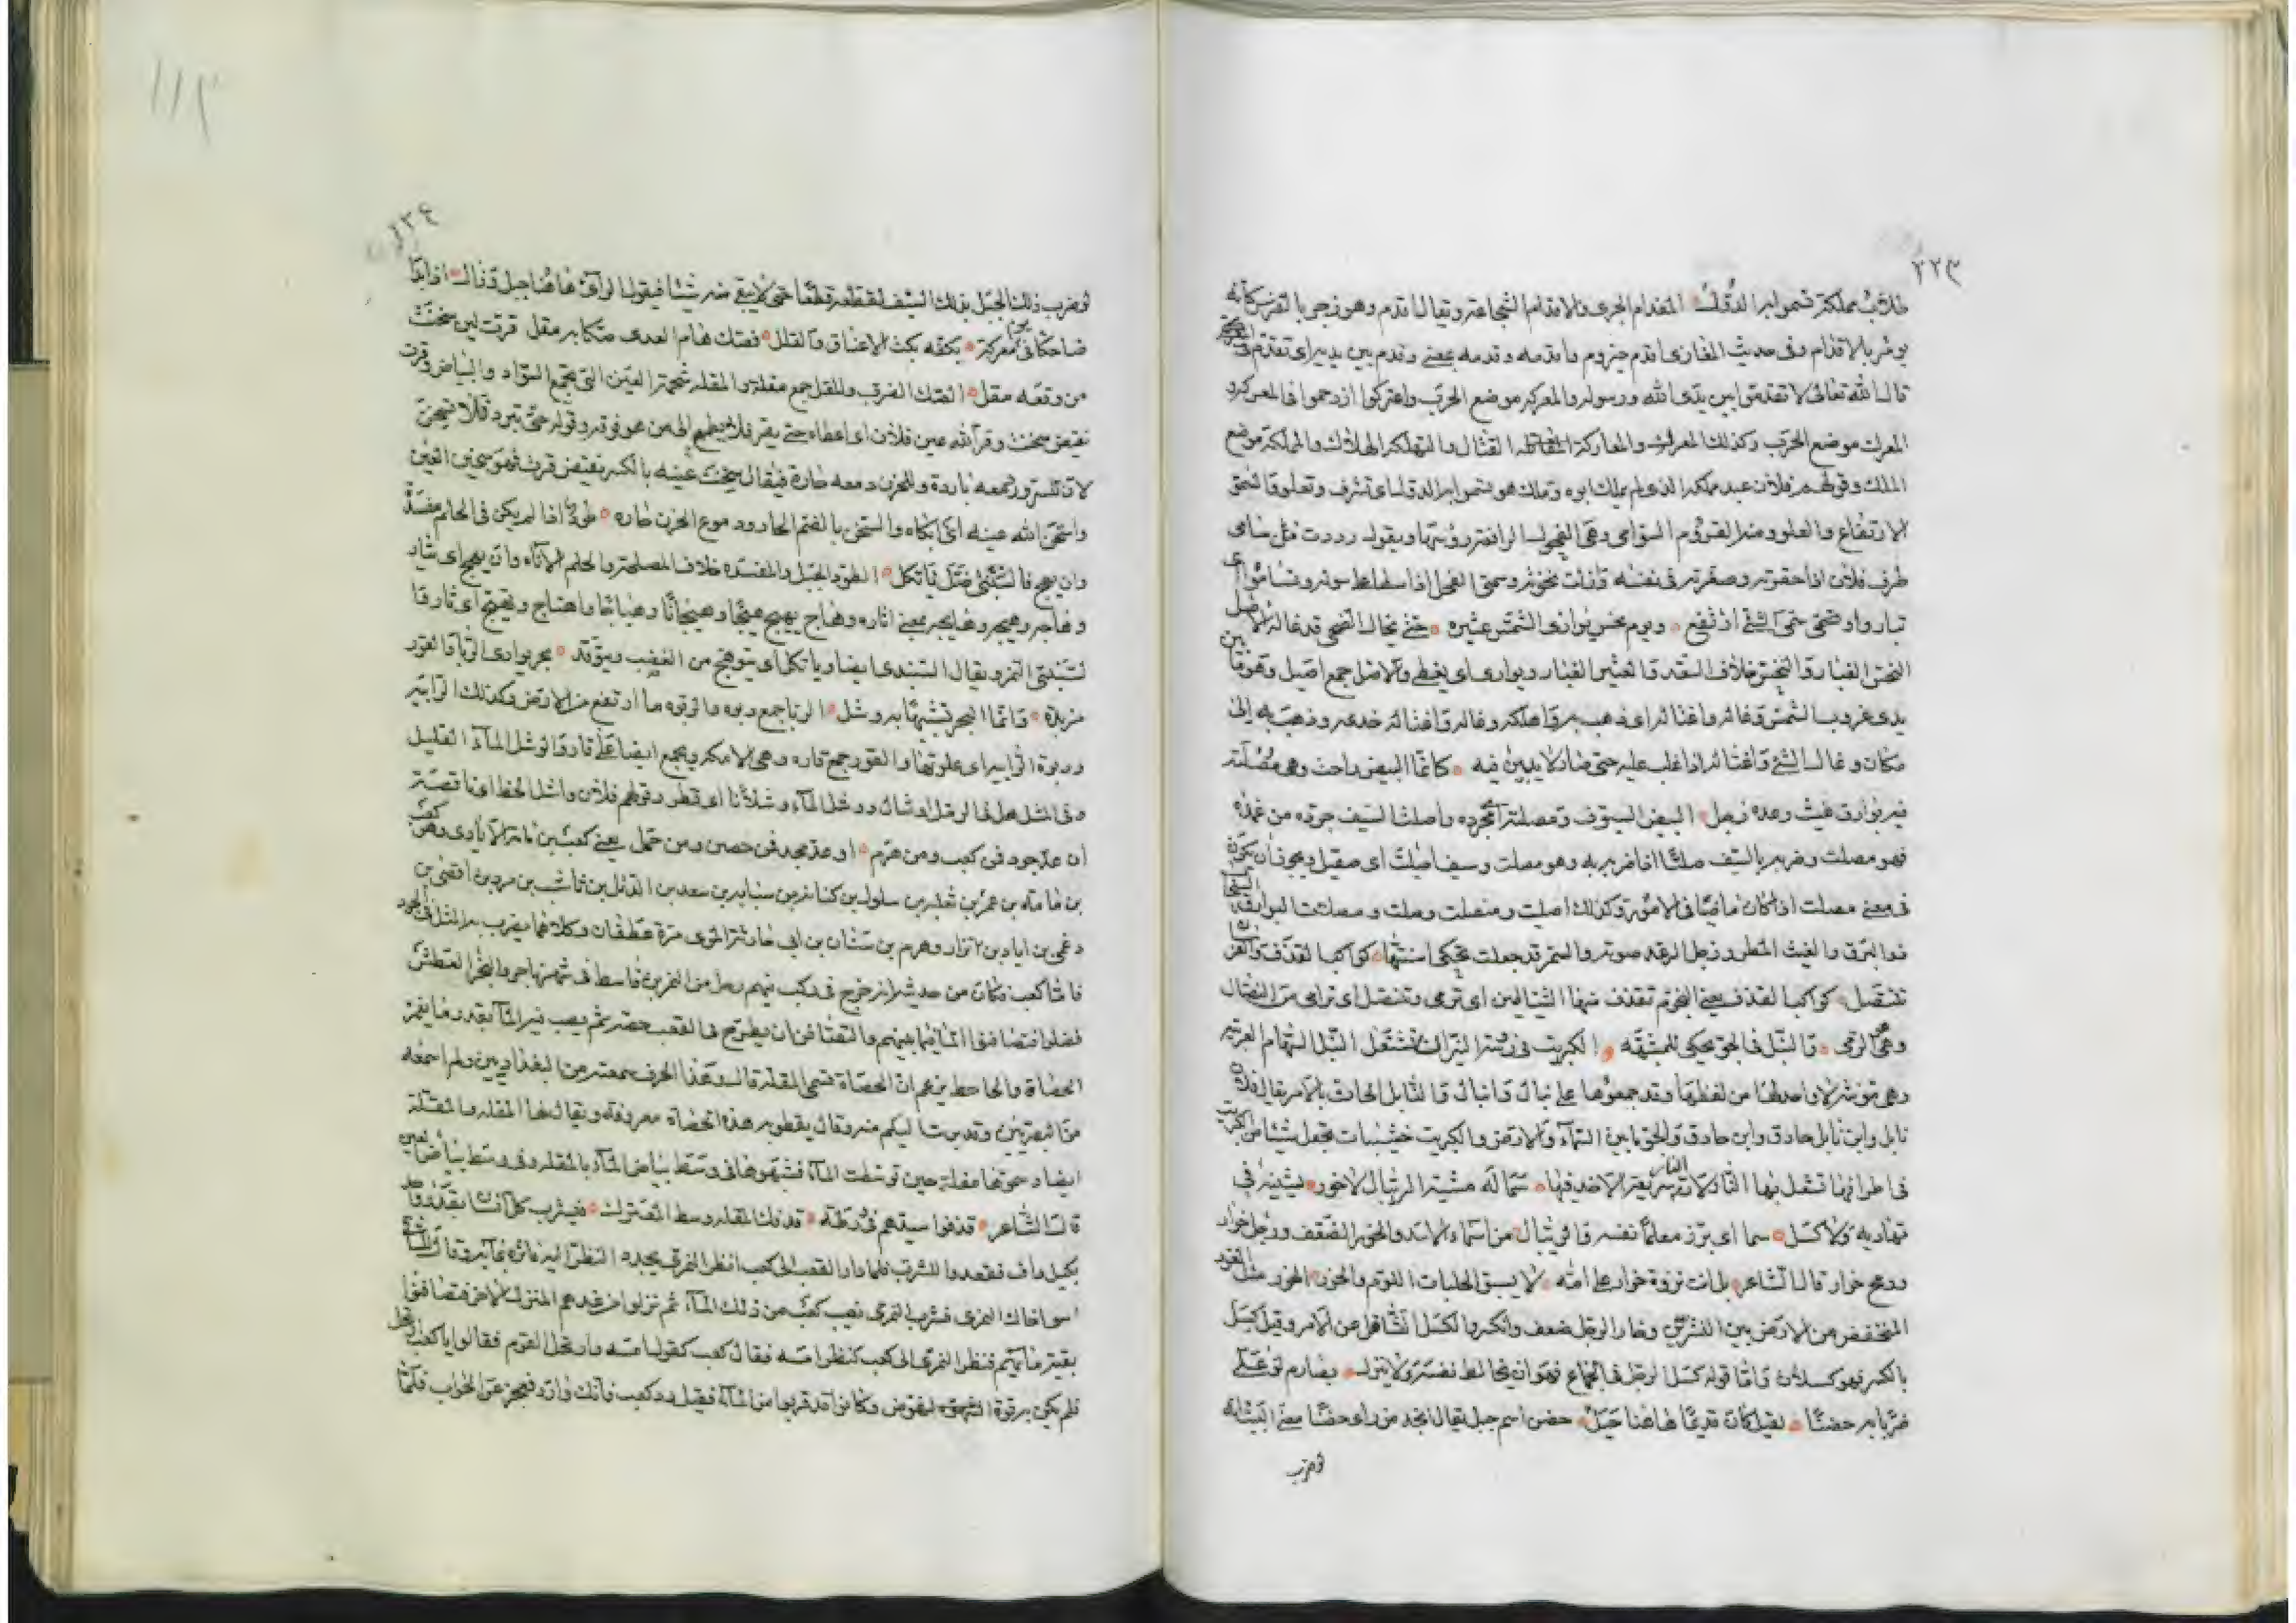 ٢٢٣
طلاب مملكة تسمو لها الدول المقدام الجرى والاقدام الشجاعة ويقال اقدم وهو زجر بالفرس كأنه
يؤمر بالاقدام وفى حديث المغازى اقدم حيزوم واقدمه وقدمه بمعنى وقدم بين يديه اى تقدم
قال الله تعالى لا تقدموا بين يدى الله ورسوله والمعركة موضع الحرب واعتركوا ازدحموا فى المعركة
المعرك موضع الحرب وكذلك المعركة والمعاركة القتال والتهلكة الهلاك والمملكة موضع
الملك وقولهم فلان عبد مملكة الذى لم يملك ابوه وتلك هو تسمو لها الدول اى تشرف وتعلو والسمو
الارتفاع والعلو ومنه القروم السوامى وهى الفحول الرافعة رؤسها ويقول رددت من سامى
طرف فلان اذا حقرته وصغرته فى نفسه وازلت نخوته وسمى الفحل اذا سطا على شوله وتساموا اى
تباروا وضحى الشئ اذ تفع ويوم نحس توارى الشمس عثيره حتى يخال الضحى قد غاله الاصل
النحس الغبار والنحس خلاف السعد والعثير الغبار ويوارى اى يغطى والاصل جمع اصيل وهو ما بين
يدى غروب الشمس وغاله واغتاله اى ذهب به واهلكه وغاله واغتاله خدعه وذهب به الى
مكان وغال الشئ واغتاله اذا غلب عليه حتى صار لا يبين فيه كانما البيض راحت وهى مصلتة
فيه بوارق غيث رعده زجل البيض السيوف ومصلتة مجردة واصلت السيف جرده من غمده
فهو مصلت وضربه بالسيف صلتا اذا ضربه به وهو مصلت وسيف اصليت اى صقيل ويجوز ان يكون
فى معنى مصلت اذا كان ماضيا فى الامور وكذلك اصليت ومنصلت وصلت ومصلات البوارق السحاب
ذو البرق والغيث المطر وزجل الرعد صوته والسمر قد جعلت تحكى اسنتها كواكب القذف
تنتضل كواكب القذف يعنى النجوم تقذف منها الشياطين اى ترمى وتنتضل اى ترامى من النضال
وهى الرمى والنبل فى الجو يحكى للمشبهه الكبريت فى رمته النيران تشتعل النبل السهام العربية
وهى مؤنثة لا واحد لها من لفظها وقد جمعوها على نبال وانبال والنابل الحاذق بالامر يقال فلان
نابل وابن نابل حاذق وابن حاذق والجو ما بين السماء والارض والكبريت خشيبات يجعل شيئا من الكبريت
فى اطرافها تشعل بها النار لانه سريعة الاخذ فيها سما له مشية الرئبال لا خور يثنيه فى
تهاديه ولا كسل سما اى برز معلما نفسه والرئبال من اسماء الاسد والخور الضعف ورجل خوار
ورمح خوار قال الشاعر بل انت نزوة خوار على امة لا يسبق الحلبات اللؤم والخور الخور مثل الغور
المنخفض من الارض بين النشزين وخار الرجل ضعف وانكسر والكسل التثاقل عن الامر وقد كسل
بالكسر فهو كسلان واما قوله كسل الرجل فى الجماع فهو ان يخالط نفسه ولا ينزل بصارم لو علا
ضربا به حضنا لقيل كان قديما هاهنا جبل حضن اسم جبل يقال انجد من رأى حضنا معنى البيت انه
لو ضرب
١١٢
٢٢٤
لو ضرب ذلك الجبل بذلك السيف لقطعه قطعا حتى لا يبقى منه شيئا فيقول الرائى هاهنا جبل وزال اذا بدا
ضاحكا فى يوم معركة بكفه يكت الاعناق والقلل فصتك هام العدى متكابر مقل قرت لمن سخنت
من وقعه مقل الفتك الضرب والمقل جمع مقلة والمقلة شحمة العين التى تجمع السواد والبياض وقرت
نقيض سخنت وقر الله عين فلان اى اعطاه حتى يقر فلا يطمح الى من هو فوقه وقوله حتى تبرد فلا تسخن
لان للسرور دمعه باردة وللحزن دمعه حارة فيقال سخنت عينه بالكسر نقيض قرت فهو سخين العين
واسخن الله عينه اى ابكاه والسخن بالضم الحار ودموع الحزن حاره طود اذا لم يكن فى الحلم مفسدة
وان يهج فالسبنتى ختل ياتكل الطود الجبل والمفسدة خلاف المصلحة والحلم الاناه وان يهج اى يثار
وهاجه وهيجه وهايجه بمعنى اثاره وهاج يهيج هيجا وهيجانا وهياجا واهتاج وتهيج اى ثار والـ
لسبنتى النمر ويقال السبندى ايضا وياتكل اى يتوهج من الغضب ويتوقد بحر يوارى الربا والقور
مزبدة وانما البحر تشبيها به وشل الربا جمع ربوه والربوه ما ارتفع من الارض وكذلك الرابية
وربوة الرابية اى علوتها والقور جمع قارة وهى الاكمة ويجمع ايضا على قار والوشل الماء القليل
وفى المثل هل فى الرمل اوشال ووشل الماء وشلانا اى قطر وقولهم فلان واشل الحظ اى ناقصه
ان عد جود فمن كعب ومن هرم او عد مجد فمن حصن ومن حمل يعنى كعب بن مامة الايادى وهو كعب
بن مامه بن عمر بن ثعلبه بن سلول بن كنانة بن شبابه بن سعد بن الدئل بن ناشب بن مرد بن افصى بن
دعمى بن اياد بن نزار وهرم بن سنان بن ابى حارثة المرى مرة غطفان وكلاهما يضرب به المثل فى الجود
فاما كعب فكان من حديثه انه خرج فى ركب فيهم رجل من النمر بن قاسط فى شهر ناجر والنجر العطش
فضلوا فتصافنوا الماء فيما بينهم والتصافن ان يطرح فى القعب حصاة ثم يصب فيه الماء بقدر ما يغمر
الحصاة والجاحظ يزعم ان الحصاة تسمى المقلة قال وهذا الحرف سمعته من البغداديين ولم اسمعه
من البصريين وقال يقطور هذه الحصاة معروفة ويقال لها المقلة والمقلة
ايضا دعوتها مقلة حين توسطت الماء فشبهوها فى وسط بياض الماء بالمقلة فى وسط بياض العين
قال الشاعر قذفوا سيدهم فى ورطة قذفك المقلة وسط المعترك فيشرب كل انسان بقدر واحد
بكيل واف فقعدوا للشرب فلما دار القعب الى كعب ابصر النمرى يحدد النظر اليه فاثره بمائه وقال للساقى
اسق اخاك النمرى فشرب النمرى نصيب كعب من ذلك الماء ثم نزلوا من غدهم المنزل الاخر فتصافنوا
بقية مائهم فنظر النمرى الى كعب كنظر امسه فقال كعب كقول امسه وارتحل القوم فقالوا يا كعب ارتحل
فلم يكن به قوة للنهوض وكانوا قد قربوا من الماء فقيل رد كعب فانك وارد فعجز عن الجواب فلما